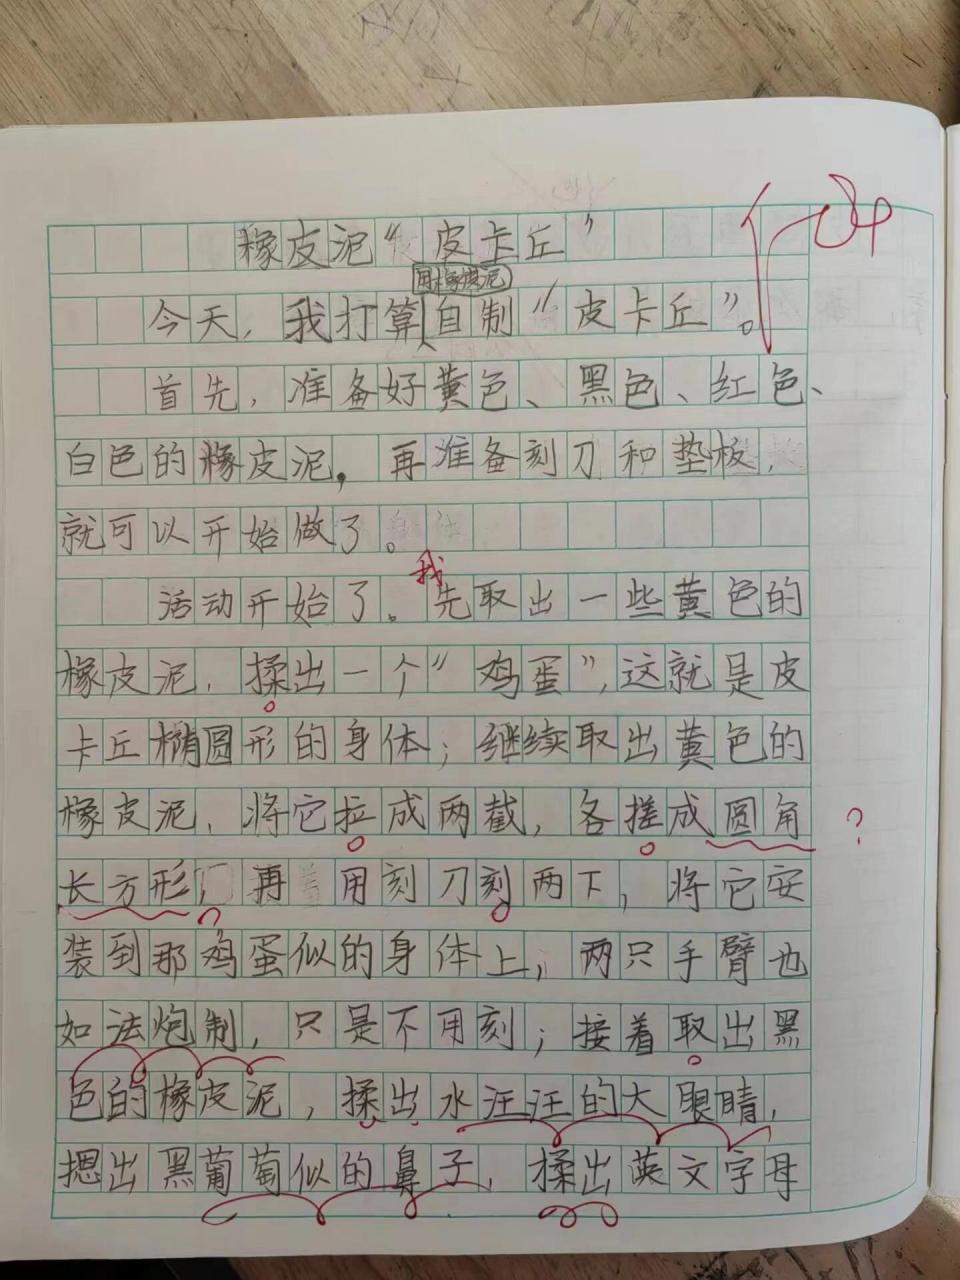 橡皮泥“皮卡丘”
用橡皮泥
今天，我打算自制“皮卡丘”。
首先，准备好黄色、黑色、红色、
白色的橡皮泥，再准备刻刀和垫板，
就可以开始做了。
我
活动开始了。先取出一些黄色的
橡皮泥，揉出一个“鸡蛋”，这就是皮
卡丘椭圆形的身体；继续取出黄色的
橡皮泥，将它拉成两截，各搓成圆角
？
长方形，再用刻刀刻两下，将它安
装到那鸡蛋似的身体上，两只手臂也
如法炮制，只是不用刻；接着取出黑
色的橡皮泥，揉出水汪汪的大眼睛，
摁出黑葡萄似的鼻子，揉出英文字母